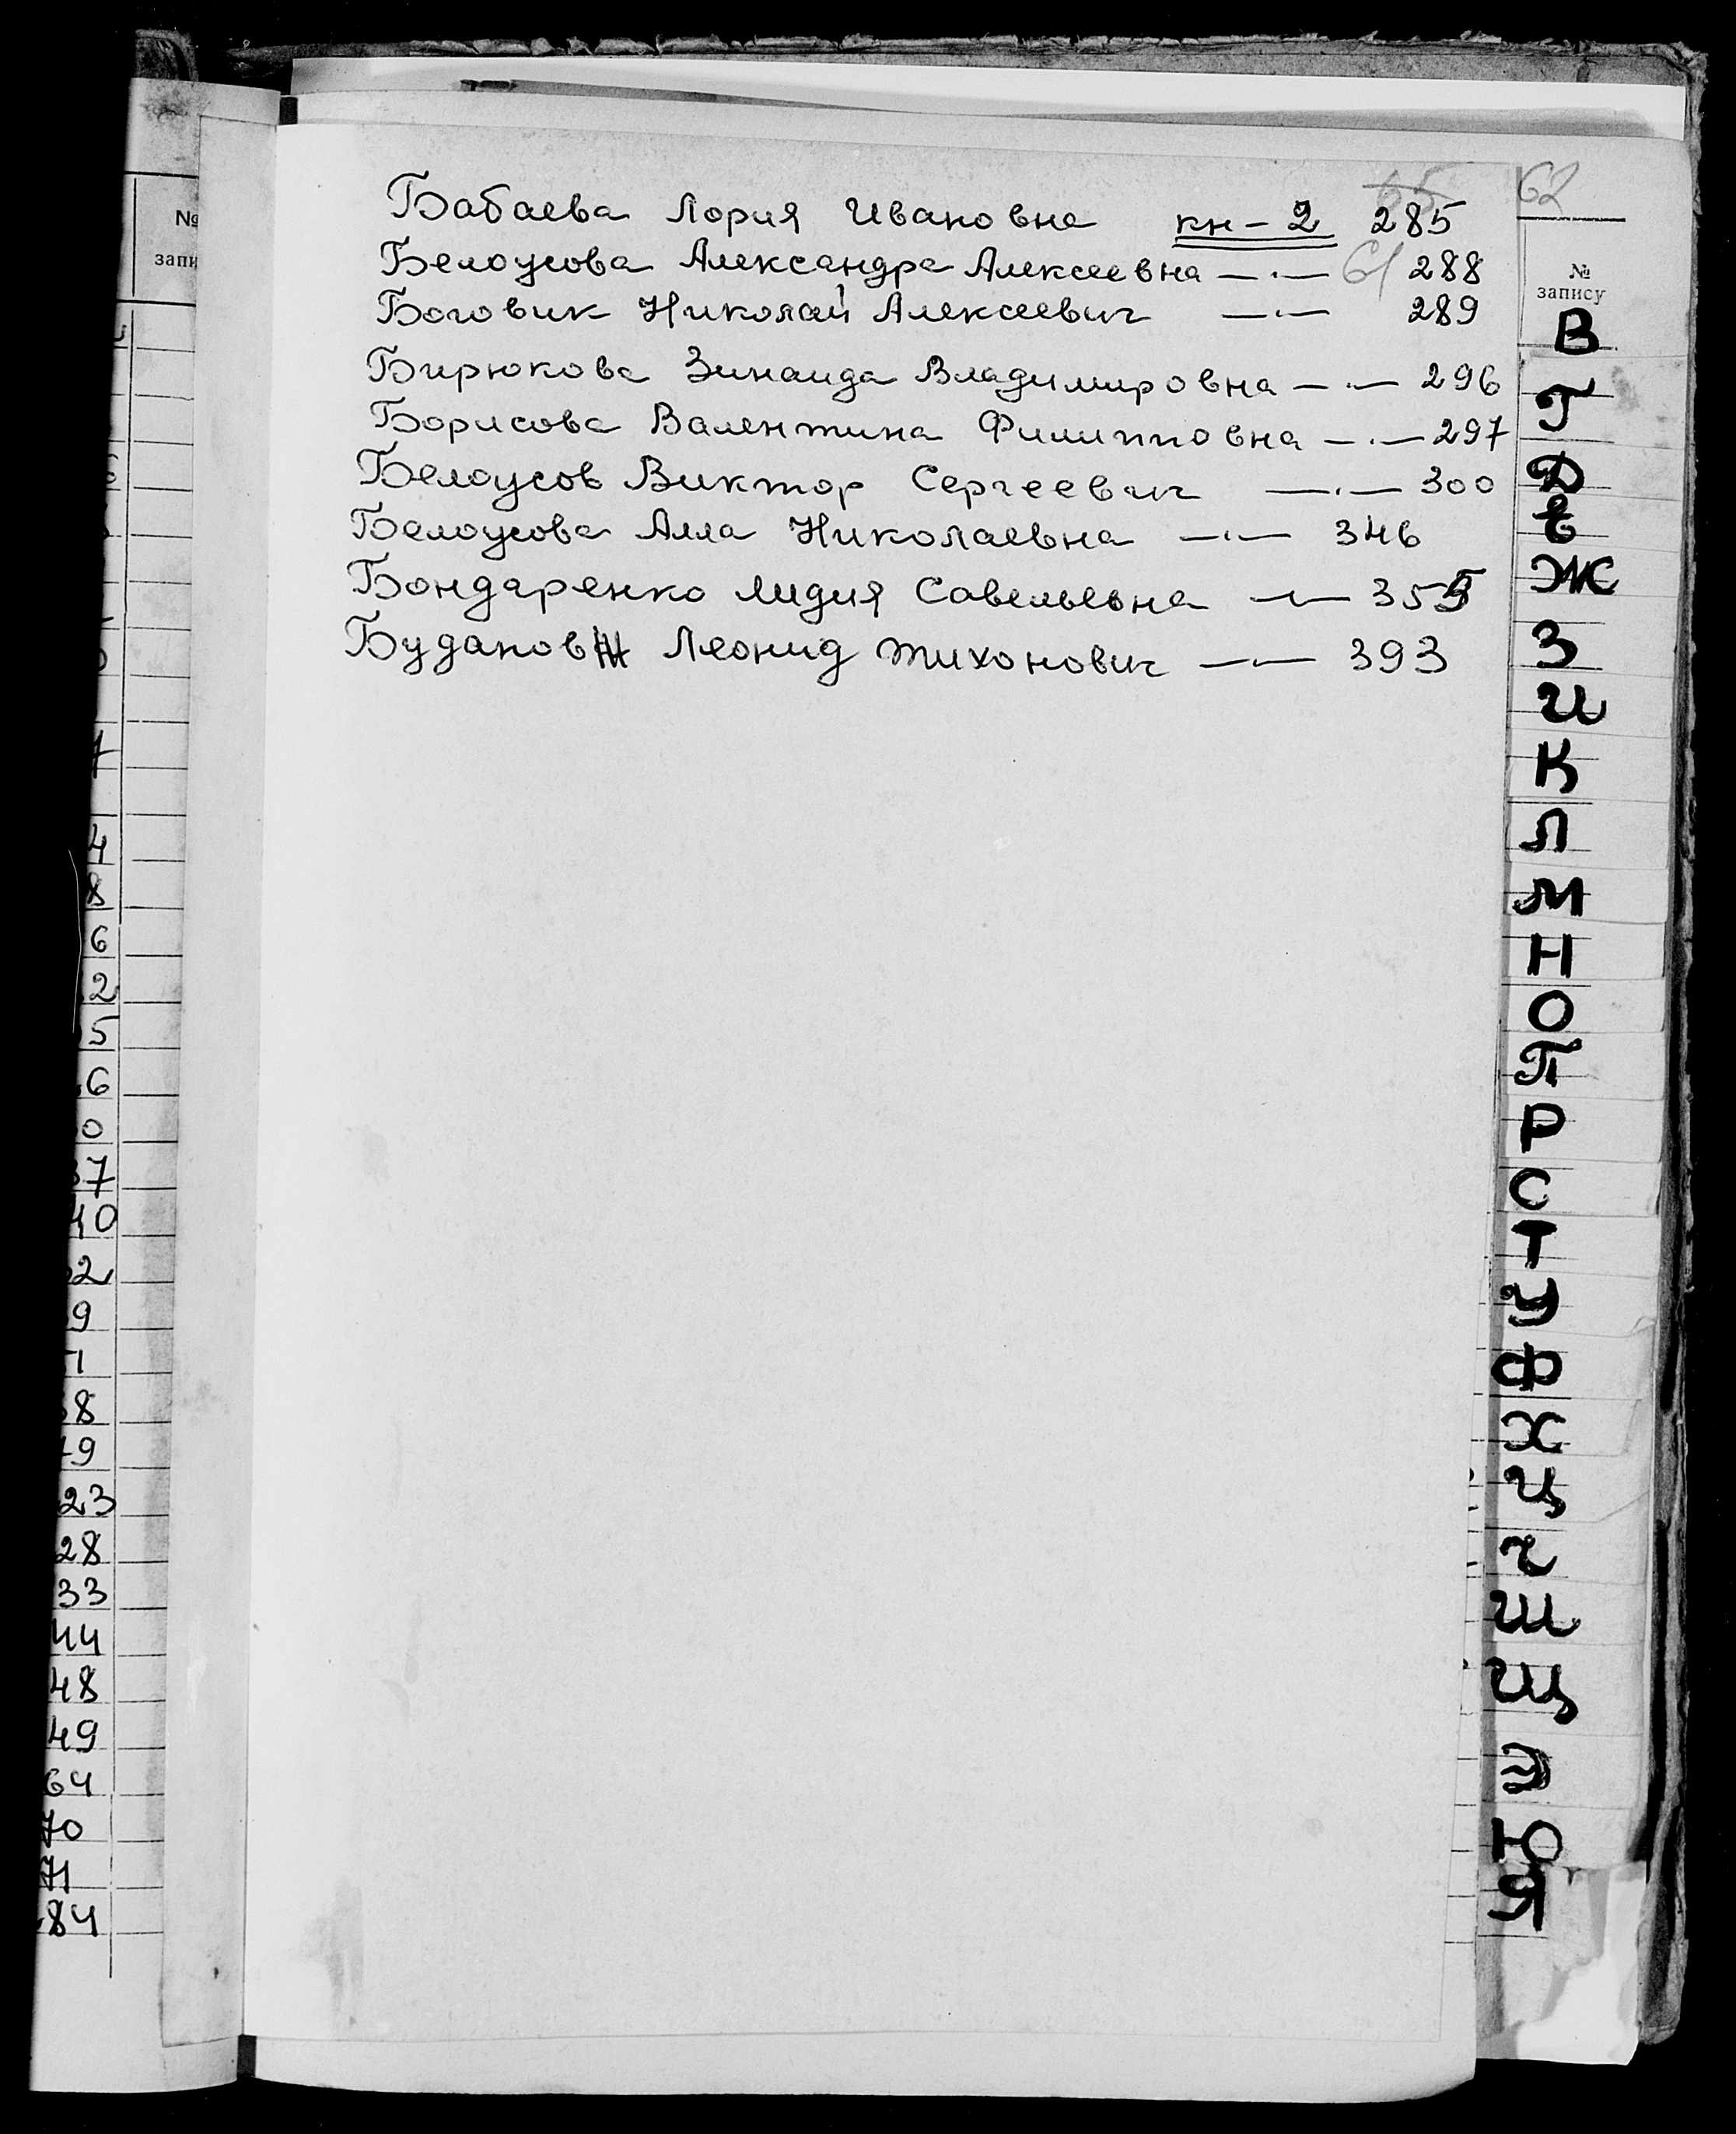 62
Бабаева Лория Ивановна кн-2 285
Белоусова Александра Алексеевна — . — 61 288
Боговик Николай Алексеевич — . — 289
Бирюкова Зинаида Владимировна — . — 296
Борисова Валентина Филипповна — . — 297
Белоусов Виктор Сергеевич — . — 300
Белоусова Алла Николаевна — . — 346
Бондаренко Лидия Савельевна — . — 355
Буданов Леонид Тихонович — . — 393
№
запи
4
8
6
2
5
6
0
37
40
2
9
8
9
23
28
33
44
48
49
64
70
71
84
№
запису
В
Г
Д
Е
Ж
З
И
К
Л
М
Н
О
П
Р
С
Т
У
Ф
Х
Ц
Ч
Ш
Щ
Э
Ю
Я